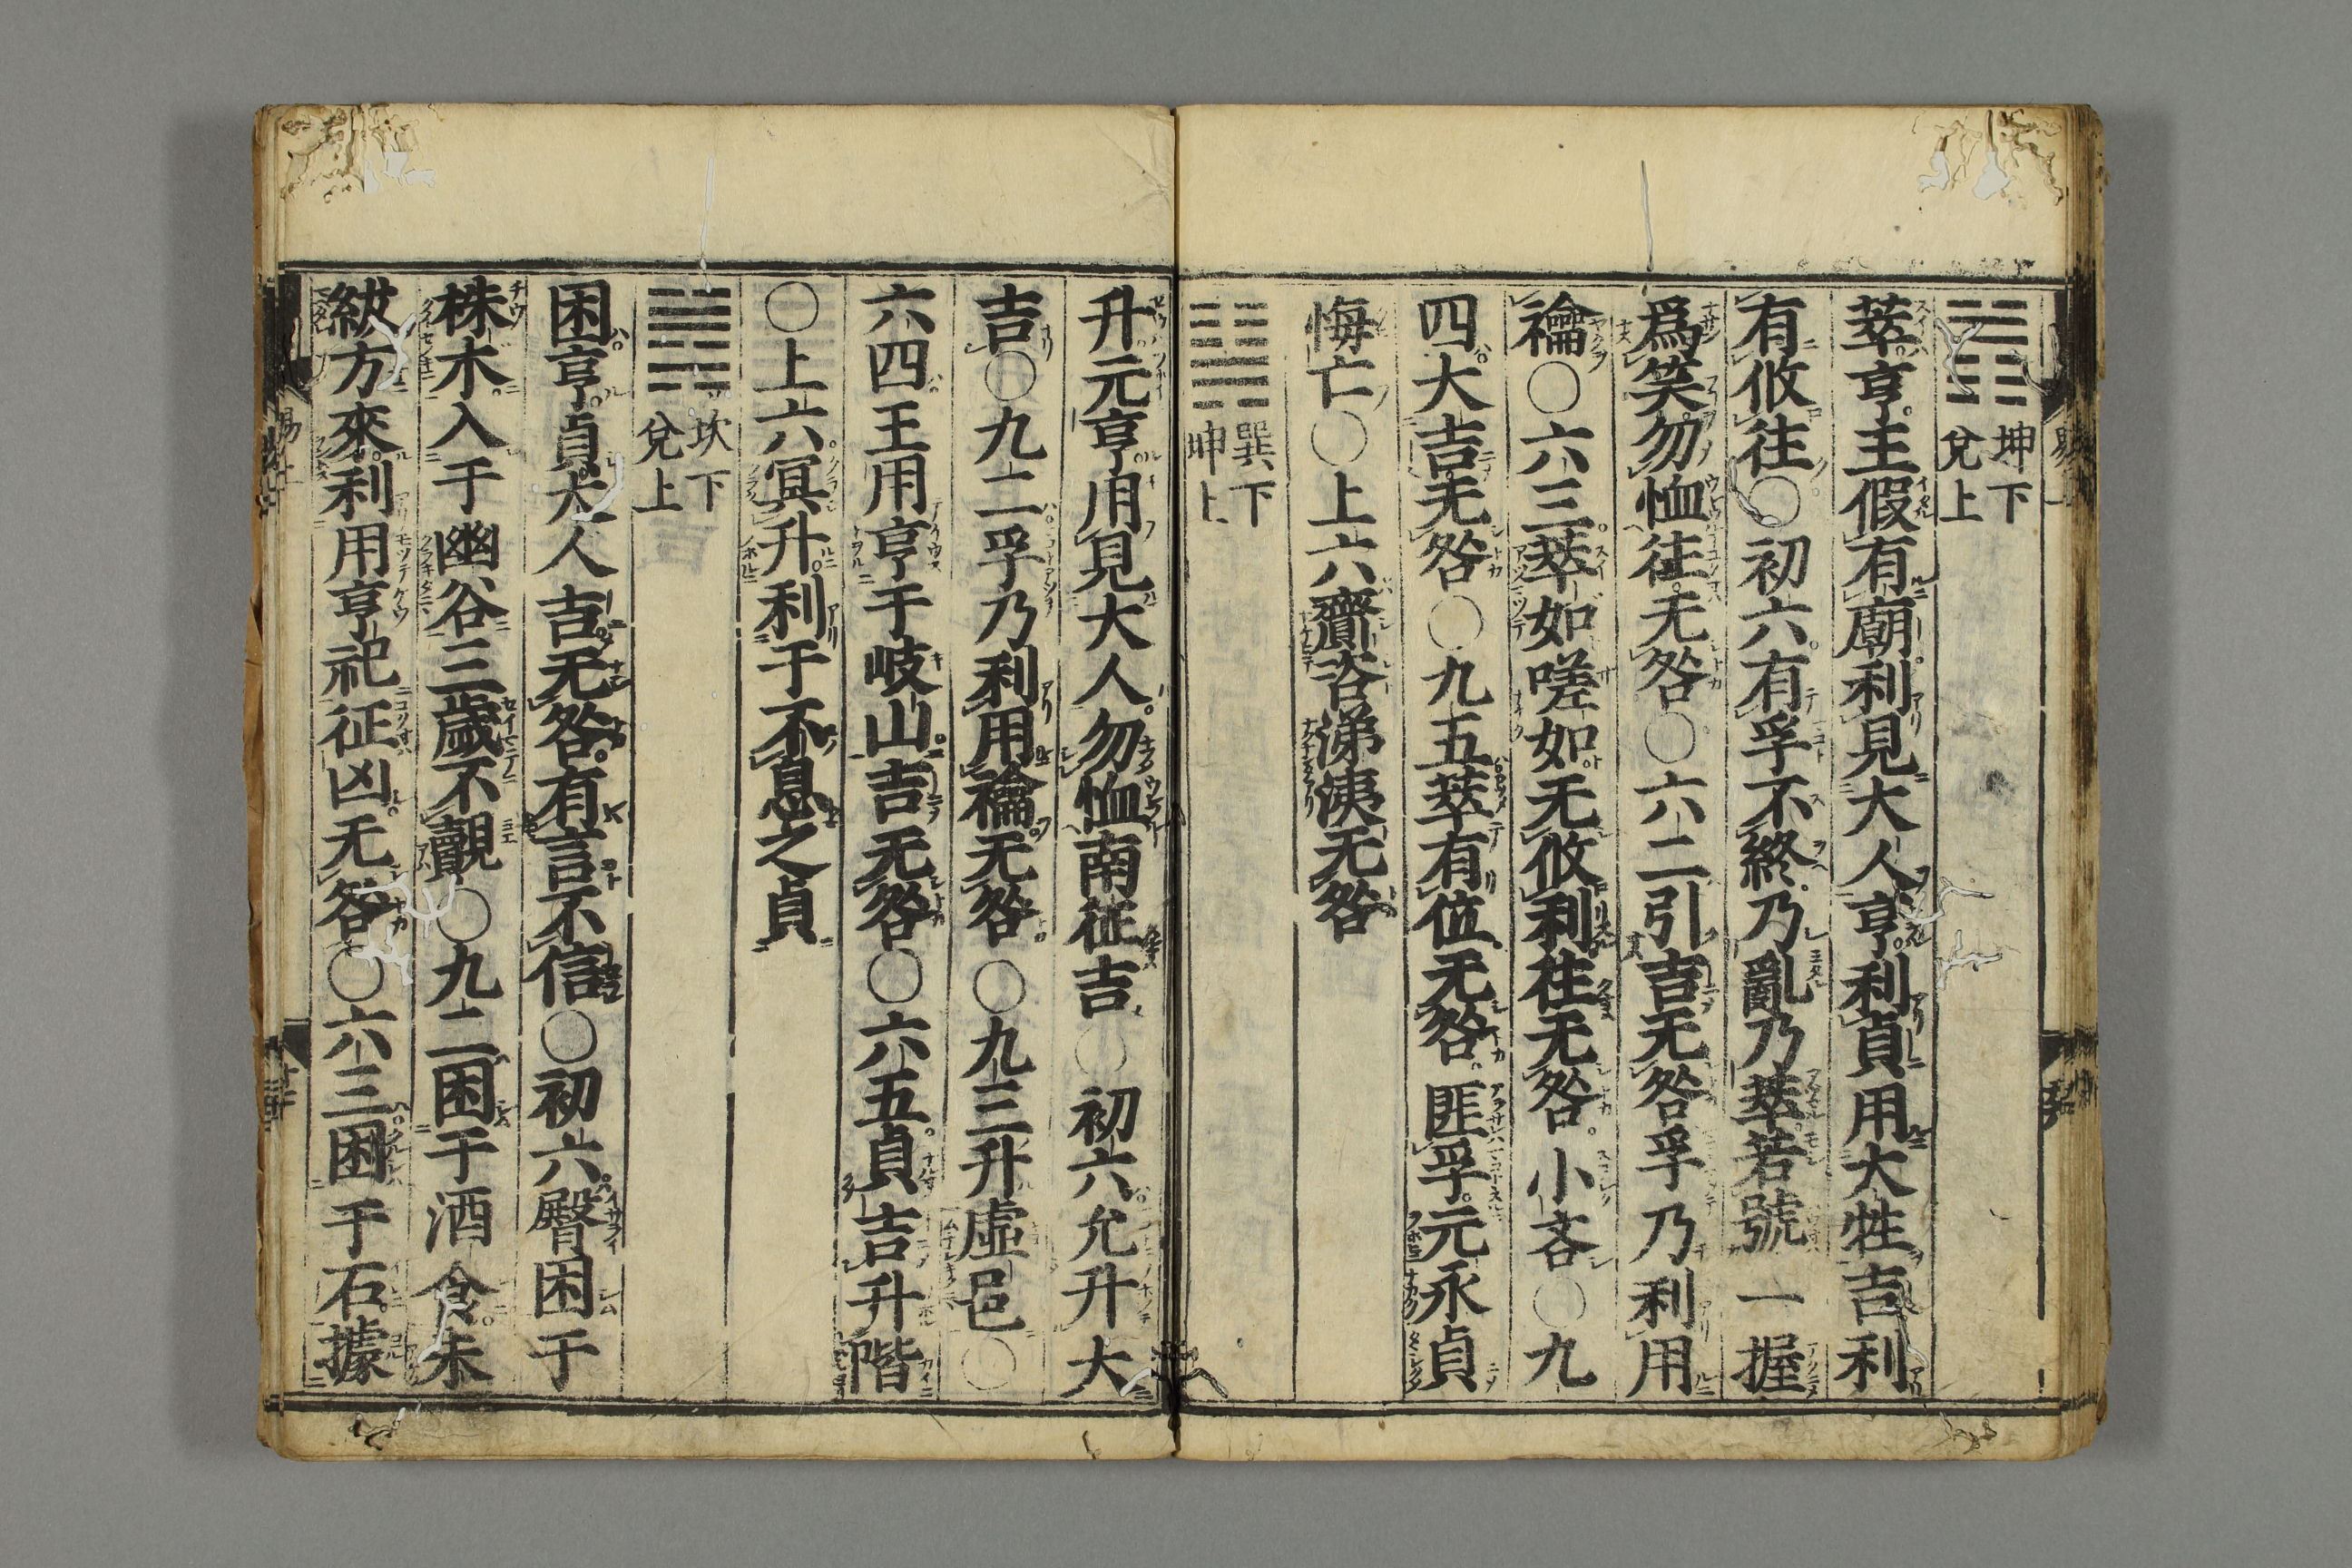 坤下
兌上
萃亨王假有廟利見大人亨利貞用大牲吉利
有攸往○初六有孚不終乃亂乃萃若號一握
爲笑勿恤往无咎○六二引吉无咎孚乃利用
禴○六三萃如嗟如无攸利往无咎小吝○九
四大吉无咎○九五萃有位无咎匪孚元永貞
悔亡○上六齎咨涕洟无咎
巽下
坤上
升元亨用見大人勿恤南征吉○初六允升大
吉○九二孚乃利用禴无咎○九三升虛邑○
六四王用亨于岐山吉无咎○六五貞吉升階
○上六冥升利于不息之貞
坎下
兌上
困亨貞大人吉无咎有言不信○初六臀困于
株木入于幽谷三歲不覿○九二困于酒食朱
紱方來利用亨祀征凶无咎○六三困于石據